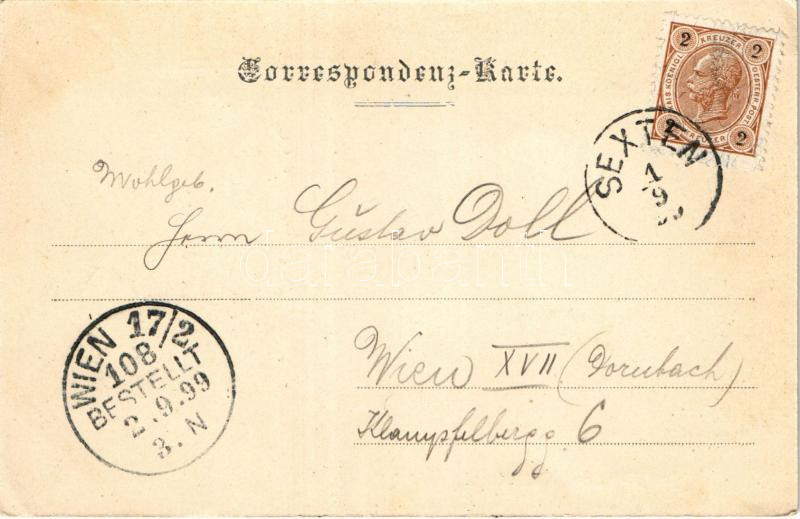 Correspondenz-Karte.
2 KREUZER 2
KAIS. KOENIGL. OESTERR. POST.
2 KREUZER 2
SEXTEN
1
9
Wohlgeb.
Herrn Gustav Doll
darabanth
WIEN 17/2
108
BESTELLT
2.9.99
3.N
Wien XVII (Dornbach)
Klampfelbergg. 6